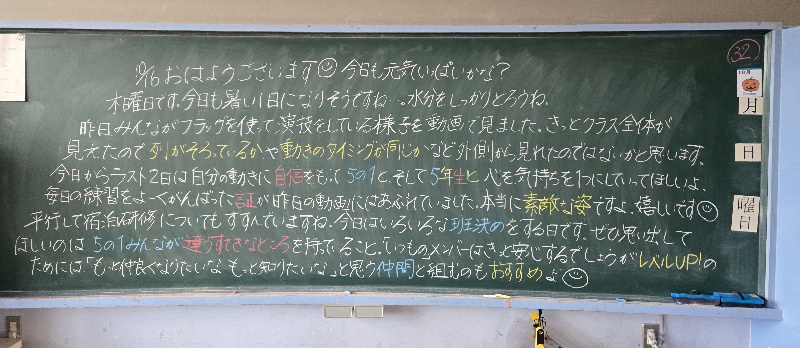 32
10/16 おはようございます 今日も元気いっぱいかな？
木曜日です。今日も暑い1日になりそうですね…。水分をしっかりとろうね。
昨日みんながフラッグを使って演技をしている様子を動画で見ました。きっとクラス全体が
見えたので列がそろっているかや動きのタイミングが同じかなど外側から見れたのではないかと思います。
今日からラスト2日は自分の動きに自信をもって5の1と、そして5年生と心を気持ちを1つにしていってほしいよ。
毎日の練習をよーくがんばった証が昨日の動画にはあふれていました。本当に素敵な姿ですよ。嬉しいです
平行して宿泊研修についてもすすんでいますね。今日はいろいろな班決めをする日です。ぜひ思い出して
ほしいのは5の1みんなが違うすてきなところを持ってること。いつものメンバーはきっと安心するでしょうがレベルUP!の
ためには「もっと仲良くなりたいな もっと知りたいな」と思う仲間と組むのもおすすめよ
10月
月
日
曜日